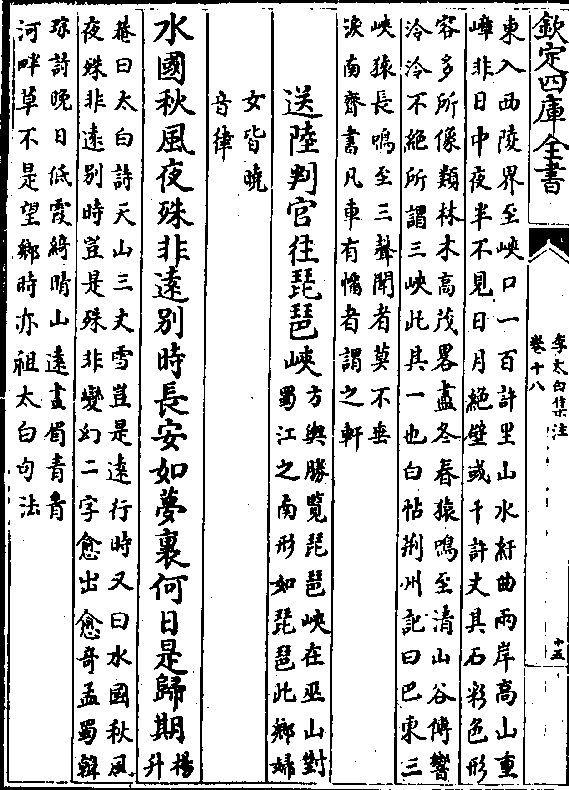 欽定四庫全書
李太白集注
卷十八
十五
東入西陵界至峽口一百許里山水紆曲兩岸高山重
嶂非日中夜半不見日月絕壁或千許丈其石彩色形
容多所像類林木高茂畧盡冬春猿鳴至清山谷傳響
泠泠不絕所謂三峽此其一也白帖荆州記曰巴東三
峽猿長鳴至三聲聞者莫不垂
淚南齊書凡車有幡者謂之軒
送陸判官往琵琶峽
方輿勝覽琵琶峽在巫山對
蜀江之南形如琵琶此鄉婦
女皆曉
音律
水國秋風夜殊非遠別時長安如夢裏何日是歸期
楊
升
菴曰太白詩天山三丈雪豈是遠行時又曰水國秋風
夜殊非遠別時豈是殊非變幻二字愈出愈奇孟蜀韓
琮詩晚日低霞綺晴山遠畫眉青青
河畔草不是望鄉時亦祖太白句法